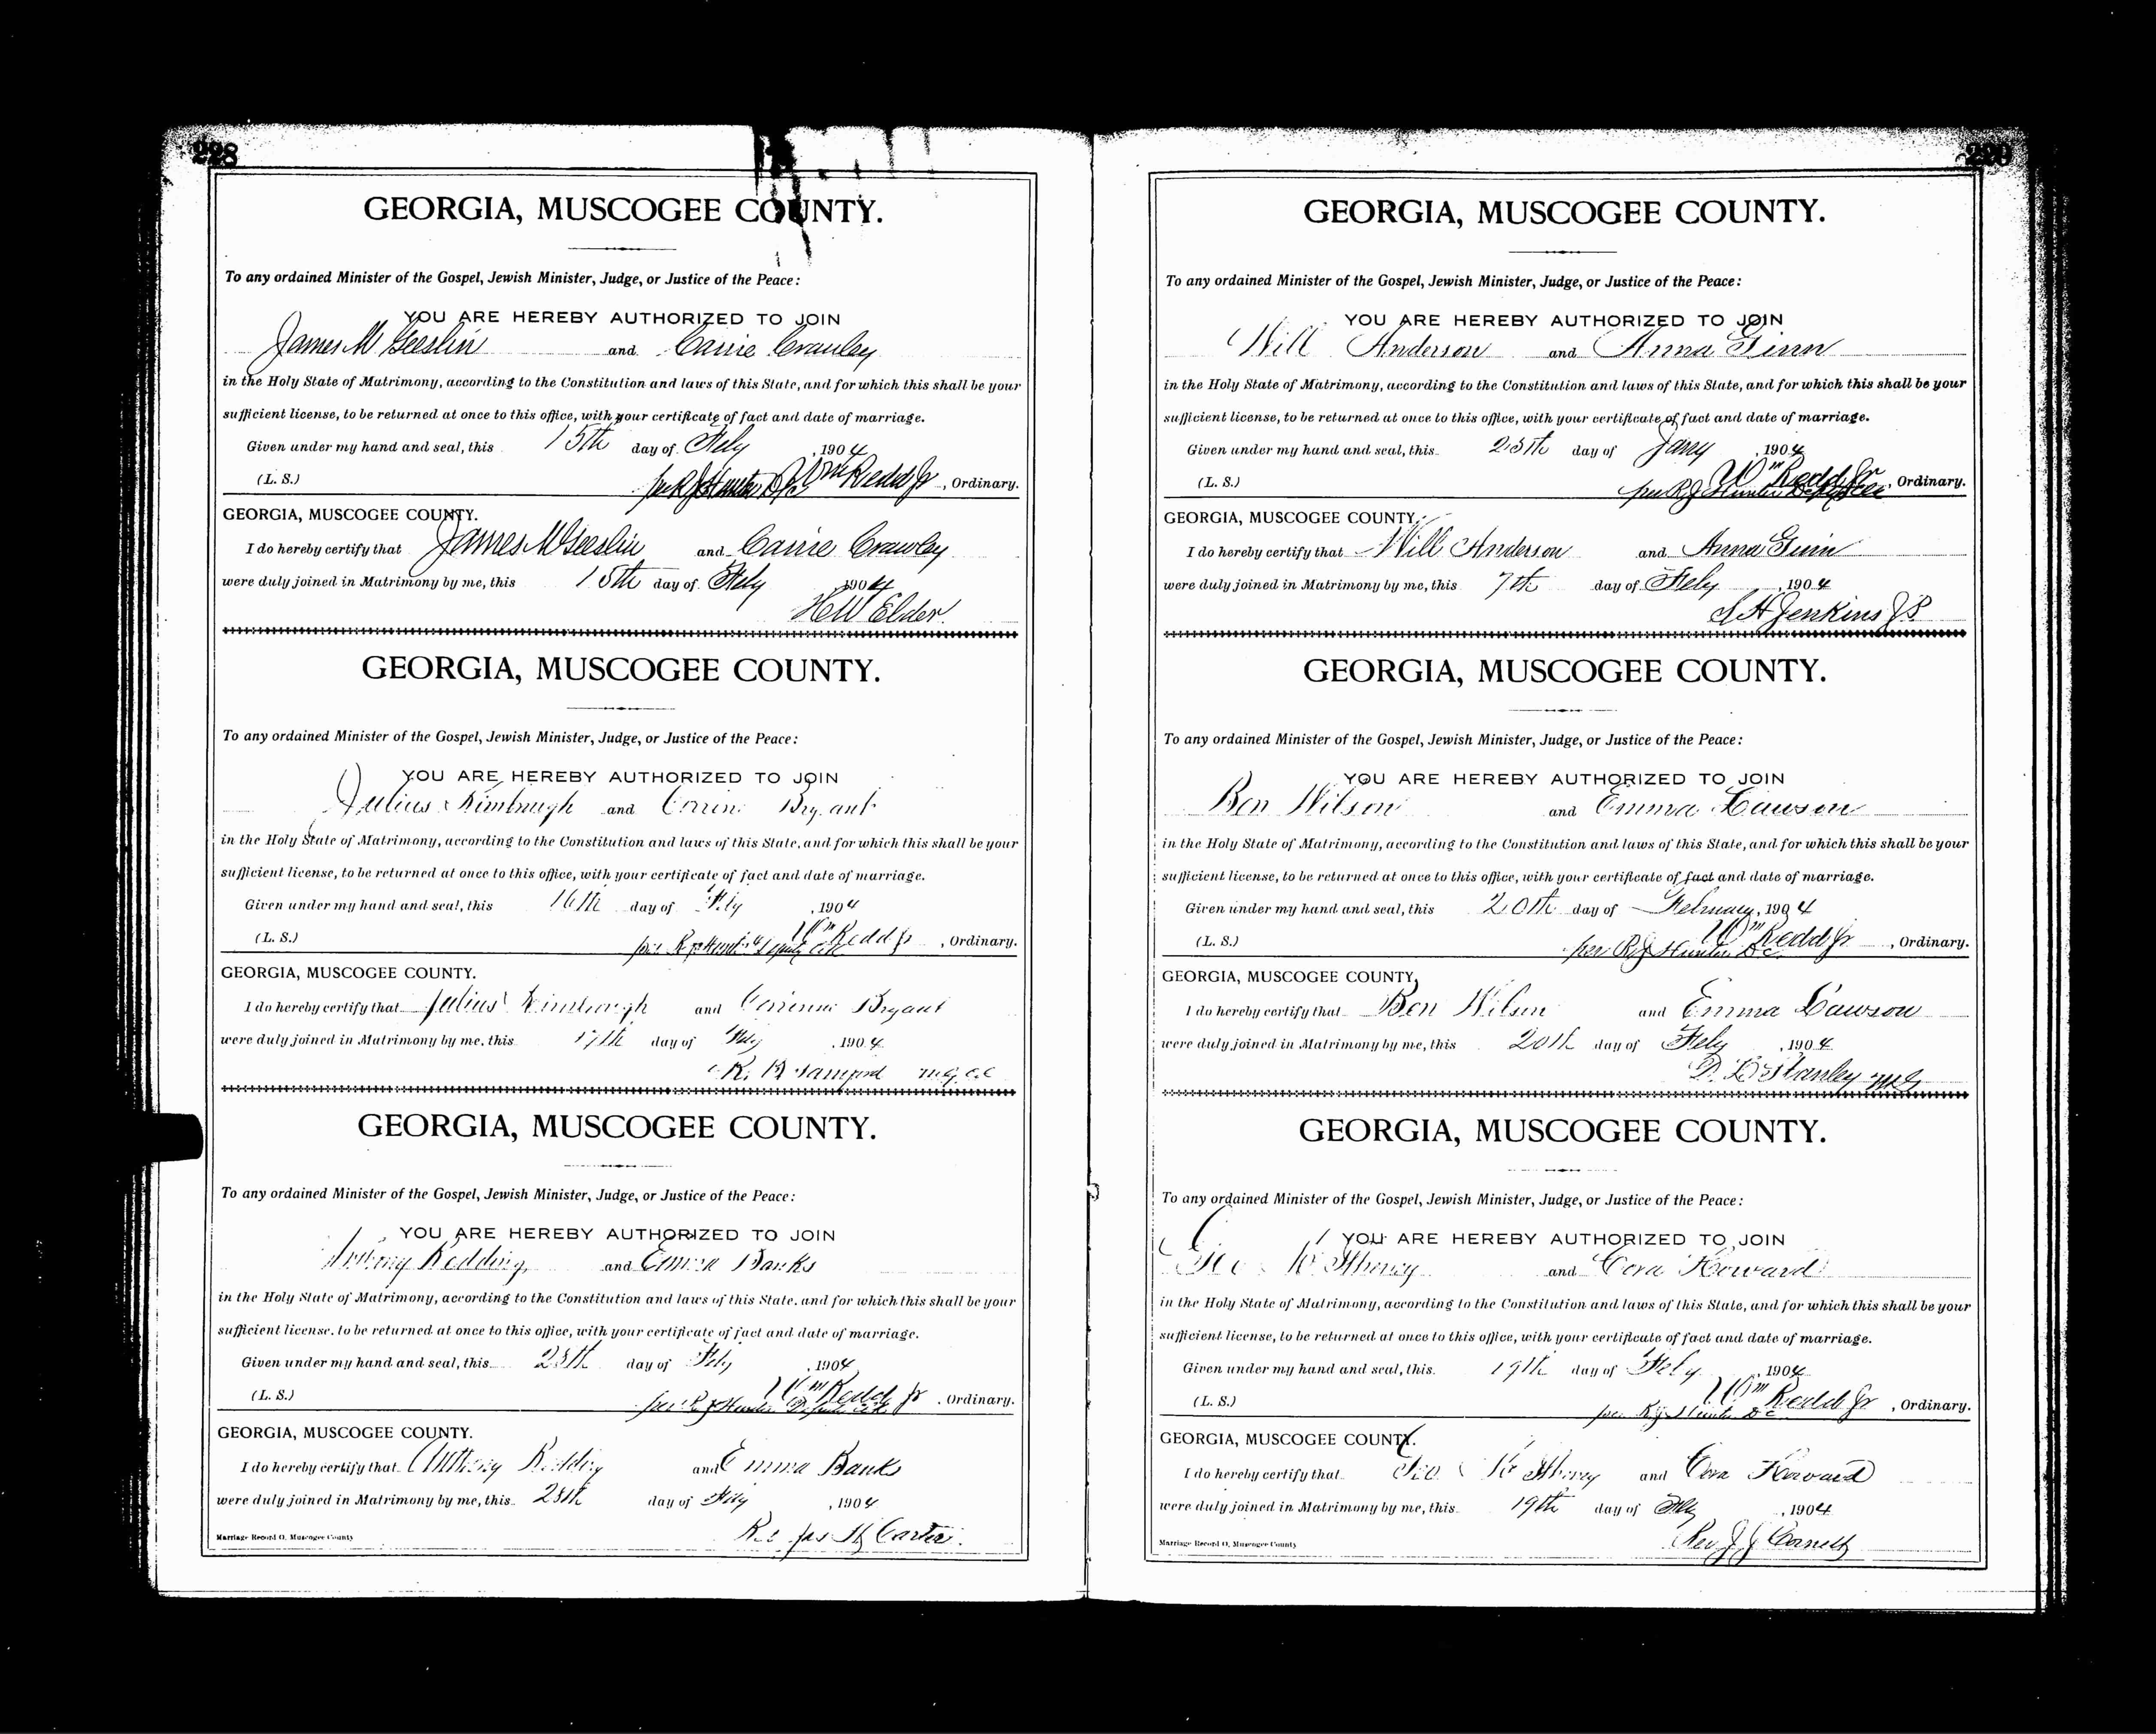 228
GEORGIA, MUSCOGEE COUNTY.
To any ordained Minister of the Gospel, Jewish Minister, Judge, or Justice of the Peace:
YOU ARE HEREBY AUTHORIZED TO JOIN
James M Geeslin and Carrie Crawley
in the Holy State of Matrimony, according to the Constitution and laws of this State, and for which this shall be your
sufficient license, to be returned at once to this office, with your certificate of fact and date of marriage.
Given under my hand and seal, this 15th day of Feby , 1904
(L. S.) per R J Hunter D C Wm Redd Jr , Ordinary.
GEORGIA, MUSCOGEE COUNTY.
I do hereby certify that James M Geeslin and Carrie Crawley
were duly joined in Matrimony by me, this 15th day of Feby 1904
H W Elder.
GEORGIA, MUSCOGEE COUNTY.
To any ordained Minister of the Gospel, Jewish Minister, Judge, or Justice of the Peace:
YOU ARE HEREBY AUTHORIZED TO JOIN
Julius Kimbrugh and Corrine Bryant
in the Holy State of Matrimony, according to the Constitution and laws of this State, and for which this shall be your
sufficient license, to be returned at once to this office, with your certificate of fact and date of marriage.
Given under my hand and seal, this 16th day of Feby , 1904
(L. S.) per R J Hunter Deputy Clk Wm Redd Jr , Ordinary.
GEORGIA, MUSCOGEE COUNTY.
I do hereby certify that Julius Kimbrough and Corinne Bryant
were duly joined in Matrimony by me, this 17th day of Feby , 1904
R. B
GEORGIA, MUSCOGEE COUNTY.
To any ordained Minister of the Gospel, Jewish Minister, Judge, or Justice of the Peace:
YOU ARE HEREBY AUTHORIZED TO JOIN
Anthony Redding and Emma Banks
in the Holy State of Matrimony, according to the Constitution and laws of this State, and for which this shall be your
sufficient license, to be returned at once to this office, with your certificate of fact and date of marriage.
Given under my hand and seal, this 28th day of Feby , 1904
(L. S.) per R J Hunter Deputy Clk Wm Redd Jr , Ordinary.
GEORGIA, MUSCOGEE COUNTY.
I do hereby certify that Anthony Redding and Emma Banks
were duly joined in Matrimony by me, this 28th day of Feby , 1904
Rev Jas H Carter.
Marriage Record O, Muscogee County
229
GEORGIA, MUSCOGEE COUNTY.
To any ordained Minister of the Gospel, Jewish Minister, Judge, or Justice of the Peace:
YOU ARE HEREBY AUTHORIZED TO JOIN
Will Anderson and Anna Ginn
in the Holy State of Matrimony, according to the Constitution and laws of this State, and for which this shall be your
sufficient license, to be returned at once to this office, with your certificate of fact and date of marriage.
Given under my hand and seal, this 25th day of Jany , 1904
(L. S.) per R J Hunter Wm Redd Jr , Ordinary.
GEORGIA, MUSCOGEE COUNTY.
I do hereby certify that Will Anderson and Anna Ginn
were duly joined in Matrimony by me, this 7th day of Feby , 1904
S H Jenkins J P
GEORGIA, MUSCOGEE COUNTY.
To any ordained Minister of the Gospel, Jewish Minister, Judge, or Justice of the Peace:
YOU ARE HEREBY AUTHORIZED TO JOIN
Ben Wilson and Emma Lawson
in the Holy State of Matrimony, according to the Constitution and laws of this State, and for which this shall be your
sufficient license, to be returned at once to this office, with your certificate of fact and date of marriage.
Given under my hand and seal, this 20th day of February, 1904
(L. S.) per R J Hunter D C Wm Redd Jr , Ordinary.
GEORGIA, MUSCOGEE COUNTY,
I do hereby certify that Ben Wilson and Emma Lawson
were duly joined in Matrimony by me, this 20th day of Feby , 1904
D. L Stanley M G
GEORGIA, MUSCOGEE COUNTY.
To any ordained Minister of the Gospel, Jewish Minister, Judge, or Justice of the Peace:
YOU ARE HEREBY AUTHORIZED TO JOIN
Geo and Cora Howard
in the Holy State of Matrimony, according to the Constitution and laws of this State, and for which this shall be your
sufficient license, to be returned at once to this office, with your certificate of fact and date of marriage.
Given under my hand and seal, this 19th day of Feby , 1904
(L. S.) per R J Hunter D C Wm Redd Jr , Ordinary.
GEORGIA, MUSCOGEE COUNTY.
I do hereby certify that Geo and Cora Howard
were duly joined in Matrimony by me, this 19th day of Feby , 1904
Rev J J
Marriage Record O, Muscogee County